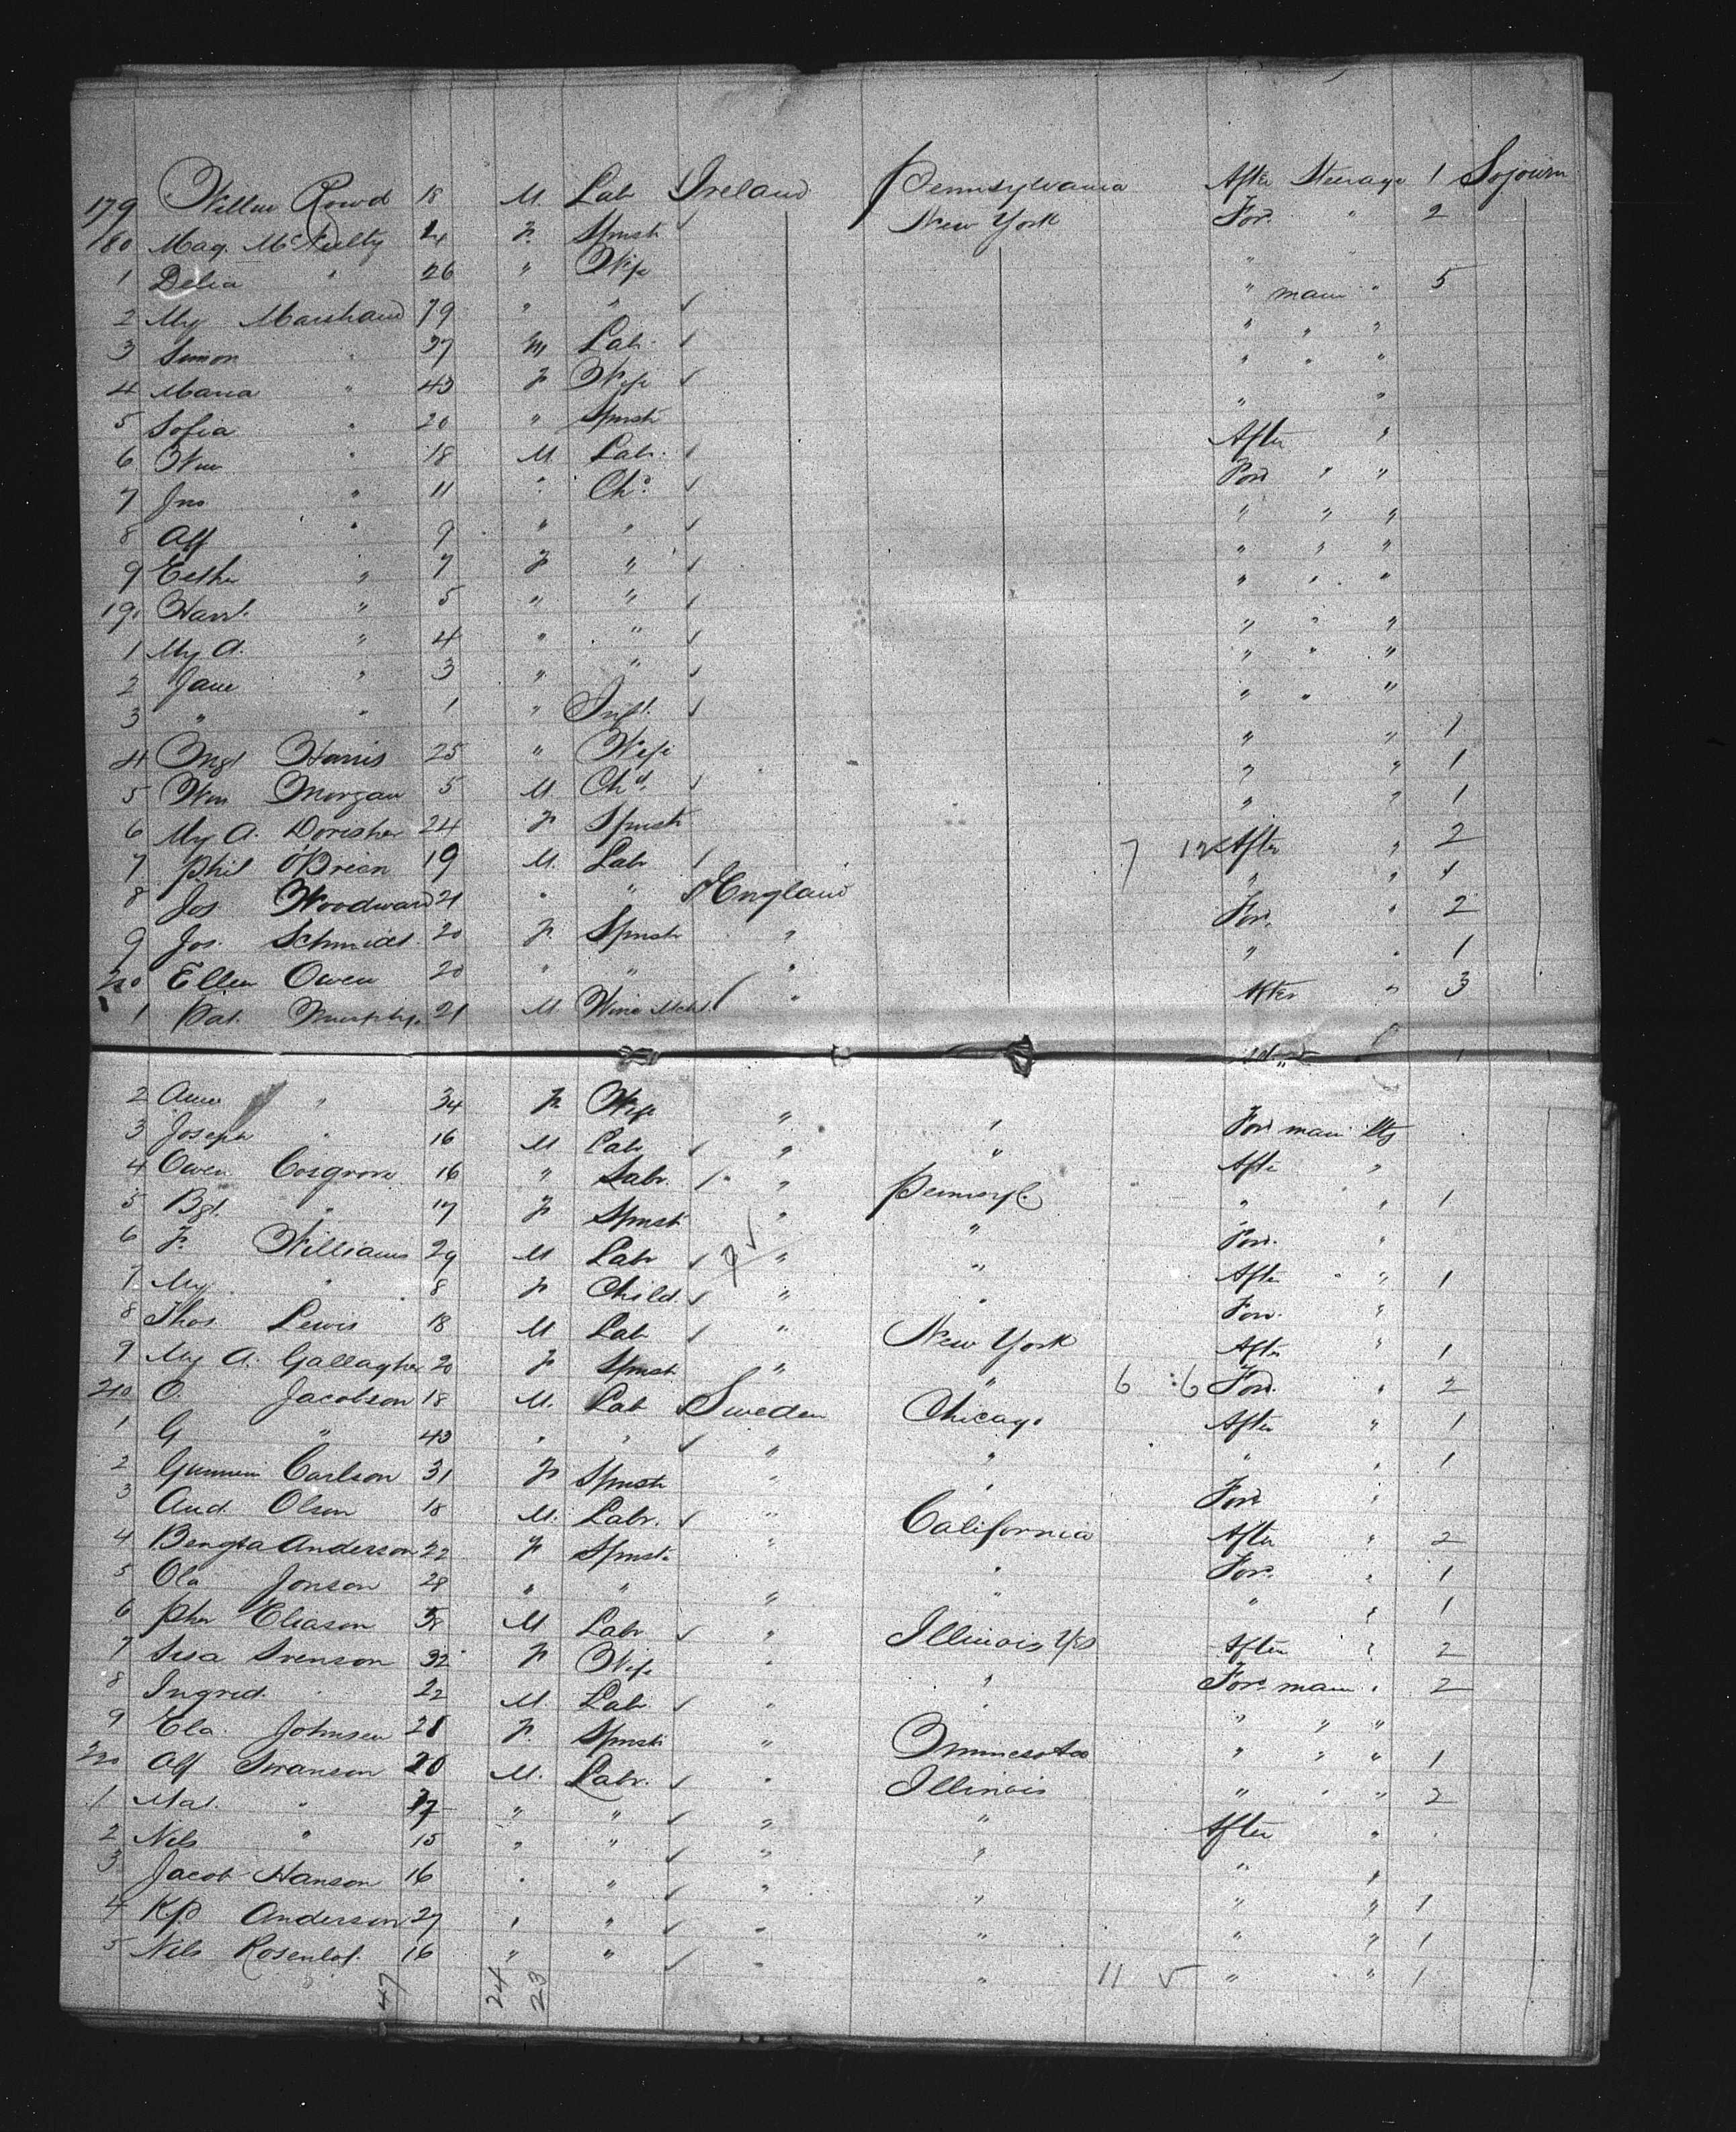 179 Willm Rowd 18 M Lab Ireland Pennsylvania After Steerage 1 Sojourn
180 Mag. McNulty 24 F. Spnstr New York For. " 2
1 Delia " 26 " Wife "
2 My Marshaud 79 " " " main " 5
3 Simon " 37 M Labr. " " "
4 Maria " 43 F Wife " " "
5 Sofia " 20 " Spnstr " "
6 Wm " 18 M Labr. After "
7 Jno " 11 " Chd. For " "
8 Alf " 9 " " " " "
9 Esther " 7 F " " " "
190 Harrt. " 5 " " " " "
1 My A. " 4 " " " " "
2 Jane " 3 " " " " "
3 " " 1 " Inft. " " "
4 Mgt Harris 25 " Wife " " 1
5 Wm Morgan 5 M Chd. " " 1
6 My A. Dorisher 24 F Spnstr " " 1
7 Phil O'Brien 19 M. Labr 7 12 After " 2
8 Jos Woodward 21 " " England " " 1
9 Jos. Schmidt 20 F. Spnstr " For. " 2
200 Ellen Owen 20 " " " " " 1
1 Pat. Murphy. 21 M Wine Mcht. " After " 3
2 Ann " 34 F. Wife " "
3 Joseph " 16 M Labr " " For main Stg
4 Owen Cosgrove 16 " Labr. " Pennsyl. After "
5 Bgt. " 17 F Spnstr " " " " 1
6 F. Williams 29 M Labr " " For. "
7 My " 8 F Child. " " After " 1
8 Thos. Lewis 18 M Lab " New York For. "
9 My A. Gallagher 20 F Spnstr " " After " 1
210 O. Jacobson 18 M. Lab Sweden Chicago 6 :6 For. " 2
1 G " 43 " " " " After " 1
2 Gunnin Carlson 31 F Spnstr " " " " 1
3 And. Olson 18 M. Labr. " California For "
4 Bengta Anderson 22 F Spnstr " " After " 2
5 Ola Jonson 28 " " " " For. " 1
6 Phr Eliason 38 M Labr " Illinois " " 1
7 Sisa Svenson 32 F Wife " " After " 2
8 Ingred. " 22 M. Labr " " For. main " 2
9 Ela. Johnsen 28 F. Spnstr " Minnesota " " "
220 Alf Swanson 20 M. Labr. " Illinois " " " 1
1 Mat. " 37 " " " " " " " 2
2 Nils " 15 " " " " After "
3 Jacob Hanson 16 " " " " " "
4 K.P. Anderson 27 " " " " " " 1
5 Nils Rosenlof. 16 " " " " " " 1
47 24 23 11 5 " " 1